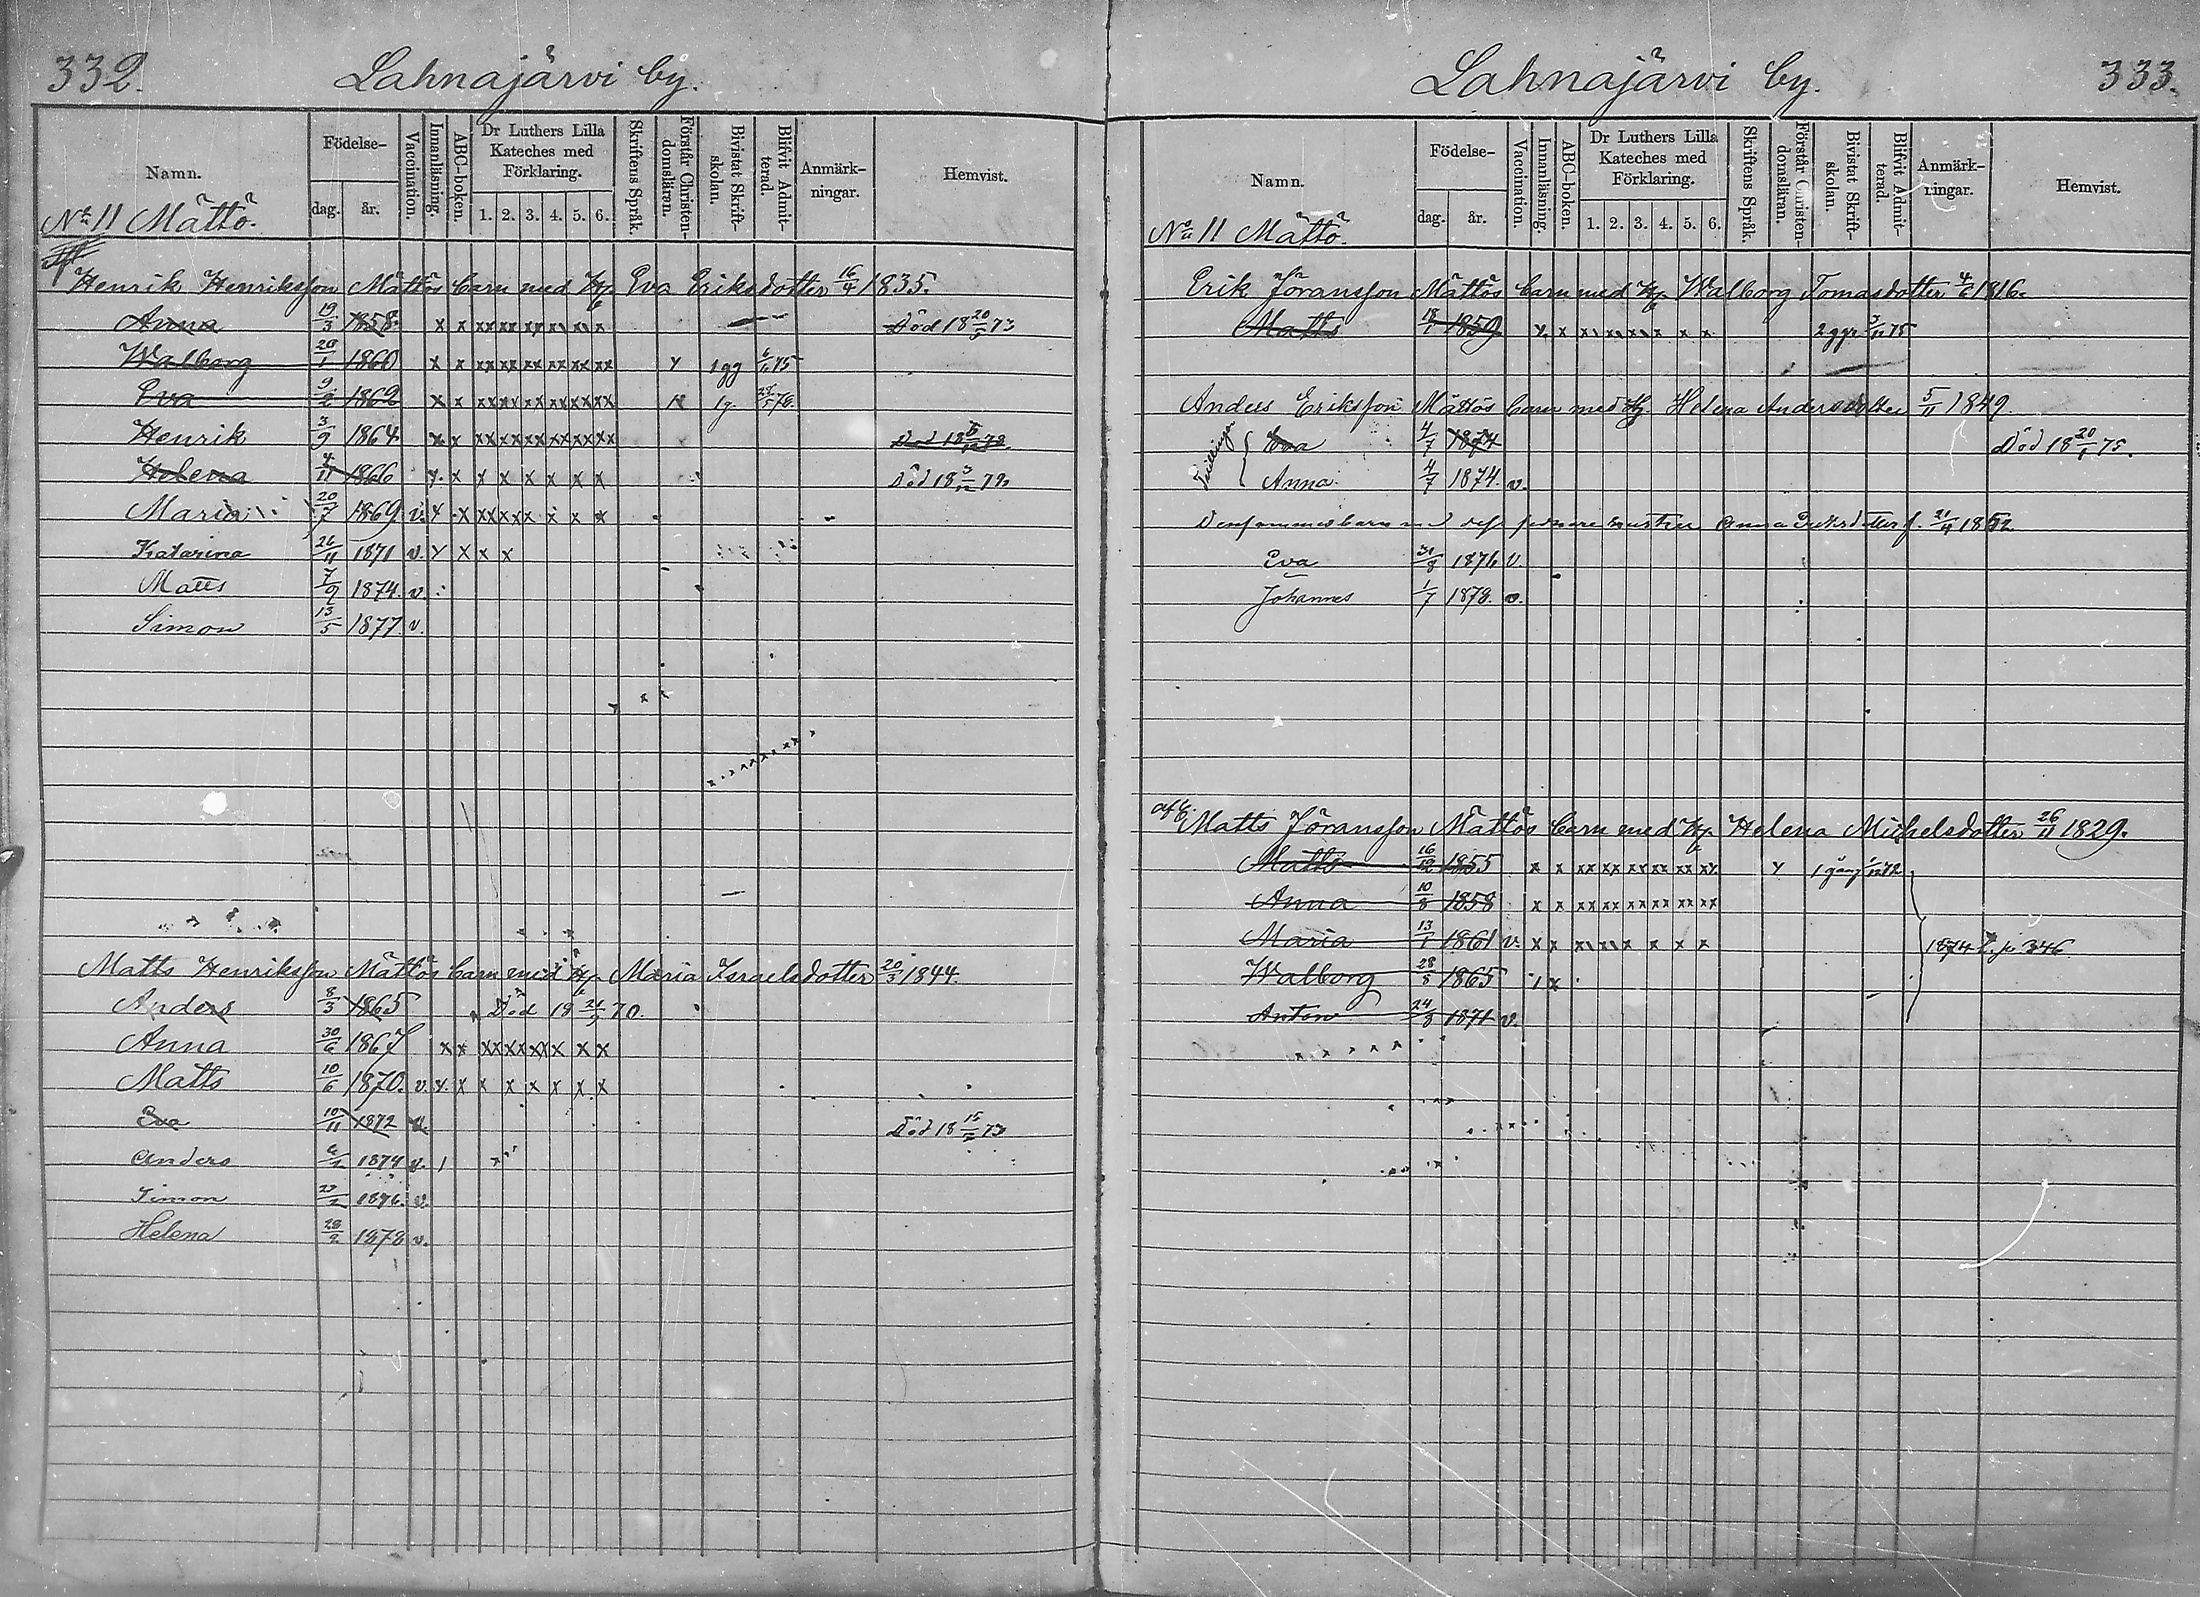 332.
Lahnajärvi by.
Namn.
Födelse-
dag. år.
Vaccination.
Innanläsning.
ABC-boken.
Dr Luthers Lilla
Kateches med
Förklaring.
1. 2. 3. 4. 5. 6.
Skriftens Språk.
Förstår Christen-
domsläran.
Bivistat Skrift-
skolan.
Blifvit Admit-
terad.
Anmärk-
ningar.
Hemvist.
No 11 Mättö.
Henrik Henriksson Mättös barn med Eva Eriksdotter 16/4 1835.
Anna 19/3 1858 x x xx xx xx x x x Död 18 20/5 73
Walborg 1860 x x xx xx xx xx xx xx 1 gg 6/11 75
Eva 9/2 1862 x x xx xx xx xx xx xx 1 g. 78
Henrik 3/9 1864 x x xx xx xx xx xx xx
Helena 4/11 1866 x x x x x x x x Död 18 3/12 72
Maria 20/7 1869 v. x x xx xx x x x x
Katarina 26/11 1871 v. x x x x
Matts 7/9 1874. v.
Simon 13/5 1877 v.
Matts Henriksson Mättös barn med Maria Israelsdotter 20/3 1844.
Anders 8/3 1865 Död 18 26/5 70.
Anna 30/6 1867 x x xx xx xx x x x
Matts 10/6 1870. v. x x x x x x x x
Eva 10/11 1872 v. Död 18 15/2 73
Anders 1874 v. 1
Simon 1876. v.
Helena 28/2 1878 v.
Lahnajärvi by.
333.
Namn.
Födelse-
dag. år.
Vaccination.
Innanläsning.
ABC-boken.
Dr Luthers Lilla
Kateches med
Förklaring.
1. 2. 3. 4. 5. 6.
Skriftens Språk.
Förstår Christen-
domsläran.
Bivistat Skrift-
skolan.
Blifvit Admit-
terad.
Anmärk-
ningar.
Hemvist.
No 11 Mättö.
Erik Jöransson Mättös barn med Walborg Tomasdotter 4/6 1816.
Matts 18/1 1859 x x x xx xx x x x 2 ggr 3/11 75
Anders Eriksson Mättös barn med Helena Andersdotter 5/11 1849.
Eva 4/7 1874 Död 18 20/1 75.
Anna 4/7 1874. v.
Densammes barn med dess senare hustru Anna f. 21/4 1852
Eva 31/8 1876 v.
Johannes 1/7 1878. v.
Matts Jöransson Mättös barn med Helena Michelsdotter 26/11 1829.
Matts 16/12 1855 x x xx xx xx xx xx xx 1 gång 72
Anna 10/8 1858 x x xx xx xx xx xx xx
Maria 13/1 1861 v. x x xx xx x x x x
Walborg 28/8 1865 1 x
Anton 24/8 1871 v.
1874 346